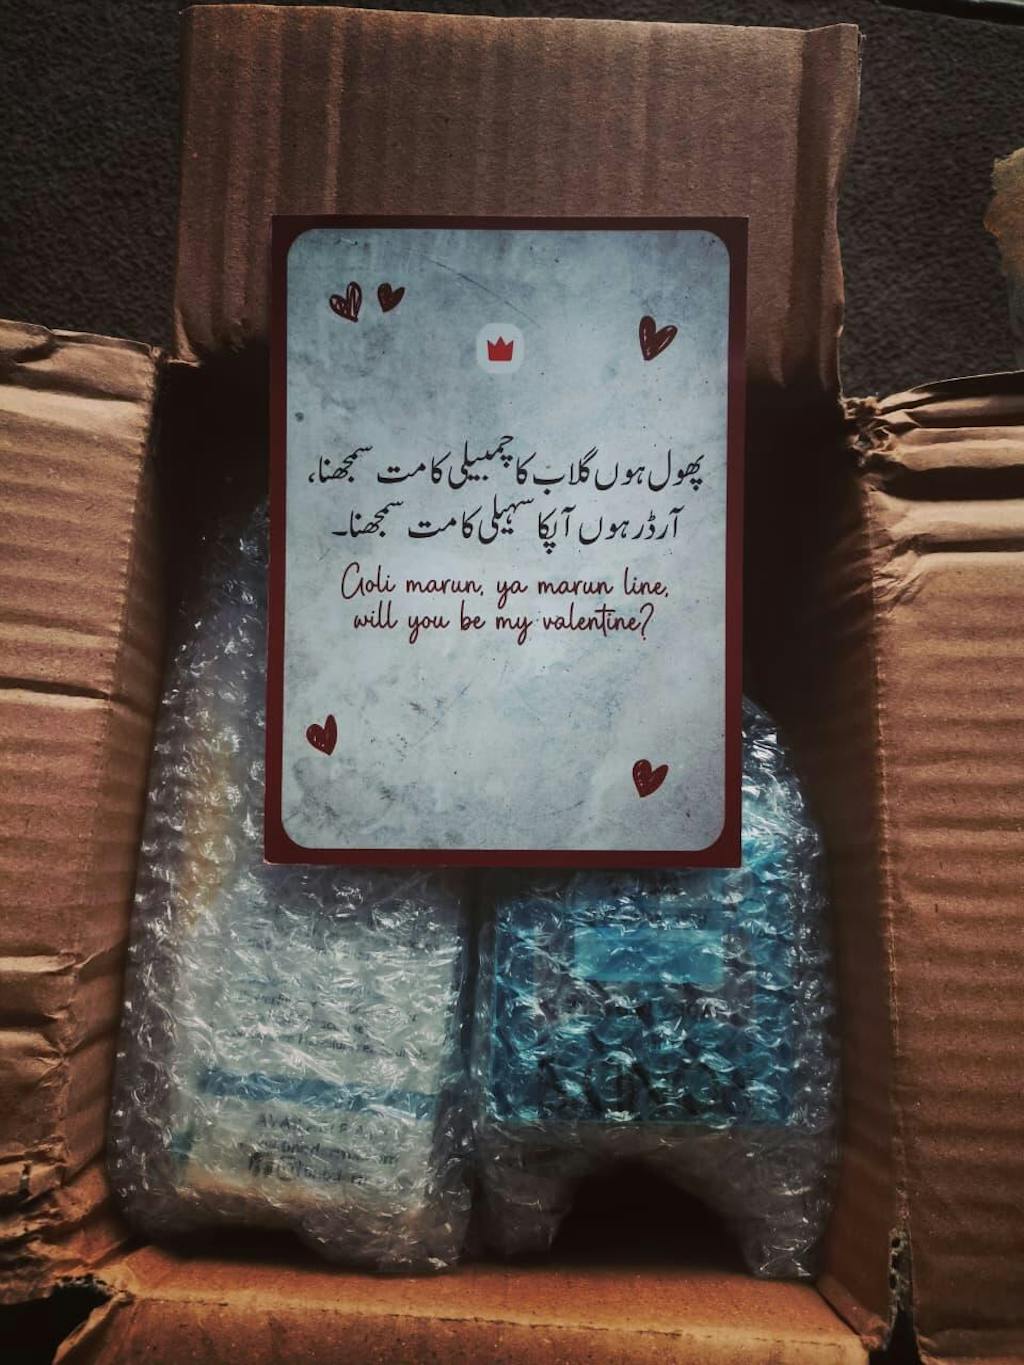 پھول ہوں گلاب کا چمبیلی کا مت سمجھنا،
آرڈر ہوں آپکا سہیلی کا مت سمجھنا۔
Goli marun, ya marun line,
will you be my valentine?